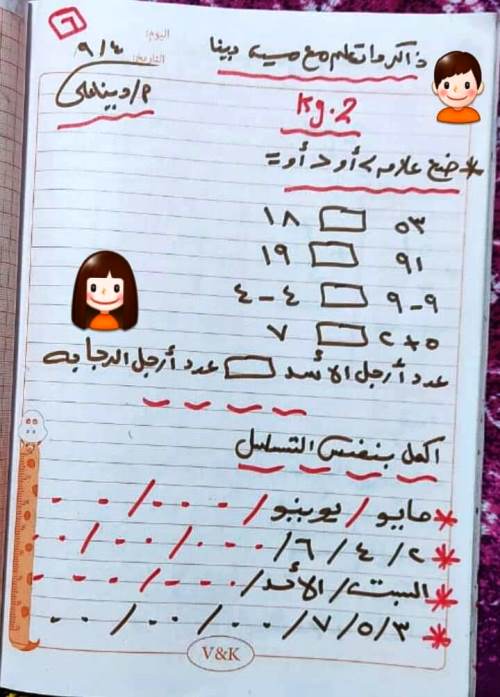 ٦
اليوم:
٩/٤
التاريخ:
ذاكر واتعلم مع ميس دينا
م/دينا على
Kg.2
* ضع علامة > أو < أو =
٥٣ □ ١٨
٩١ □ ١٩
٩-٩ □ ٤-٤
٥+٢ □ ٧
عدد أرجل الأسد □ عدد أرجل الدجاجة
اكمل بنفس التسلسل
* مايو / يوينيو / --- / ---
* ٢ / ٤ / ٦ / --- / --- / --
* السبت / الأحد / --- / ---
* ٣ / ٥ / ٧ / -- / -- / --
V&K